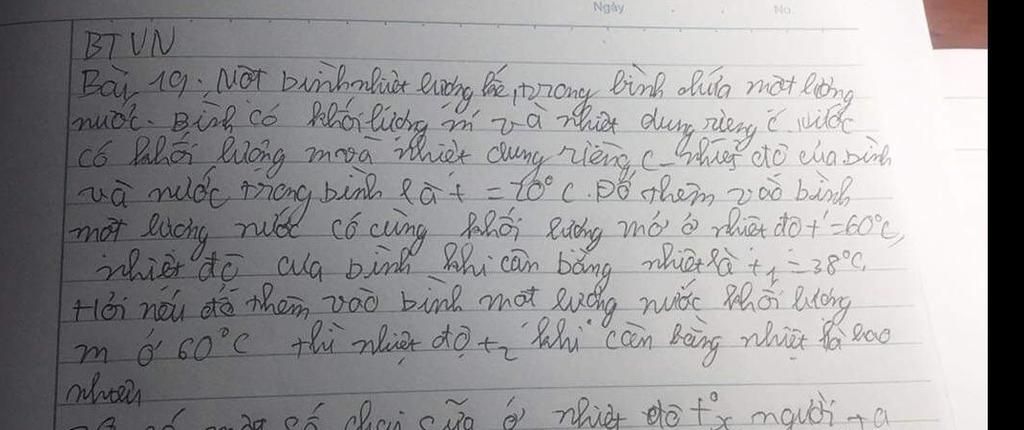 Ngày No.
BTVN
Bài 19: Một bình nhiệt lượng kế, trong bình chứa một lượng
nước. Bình có khối lượng m' và nhiệt dung riêng c'. Nước
có khối lượng m và nhiệt dung riêng c. Nhiệt độ của bình
và nước trong bình là t = 20°C. Đổ thêm vào bình
một lượng nước có cùng khối lượng m ở nhiệt độ t' = 60°C,
nhiệt độ của bình khi cân bằng nhiệt là t₁ = 38°C.
Hỏi nếu đổ thêm vào bình một lượng nước khối lượng
m ở 60°C thì nhiệt độ t₂ khi cân bằng nhiệt là bao
nhiêu
có chai sữa ở nhiệt độ t°x người ta